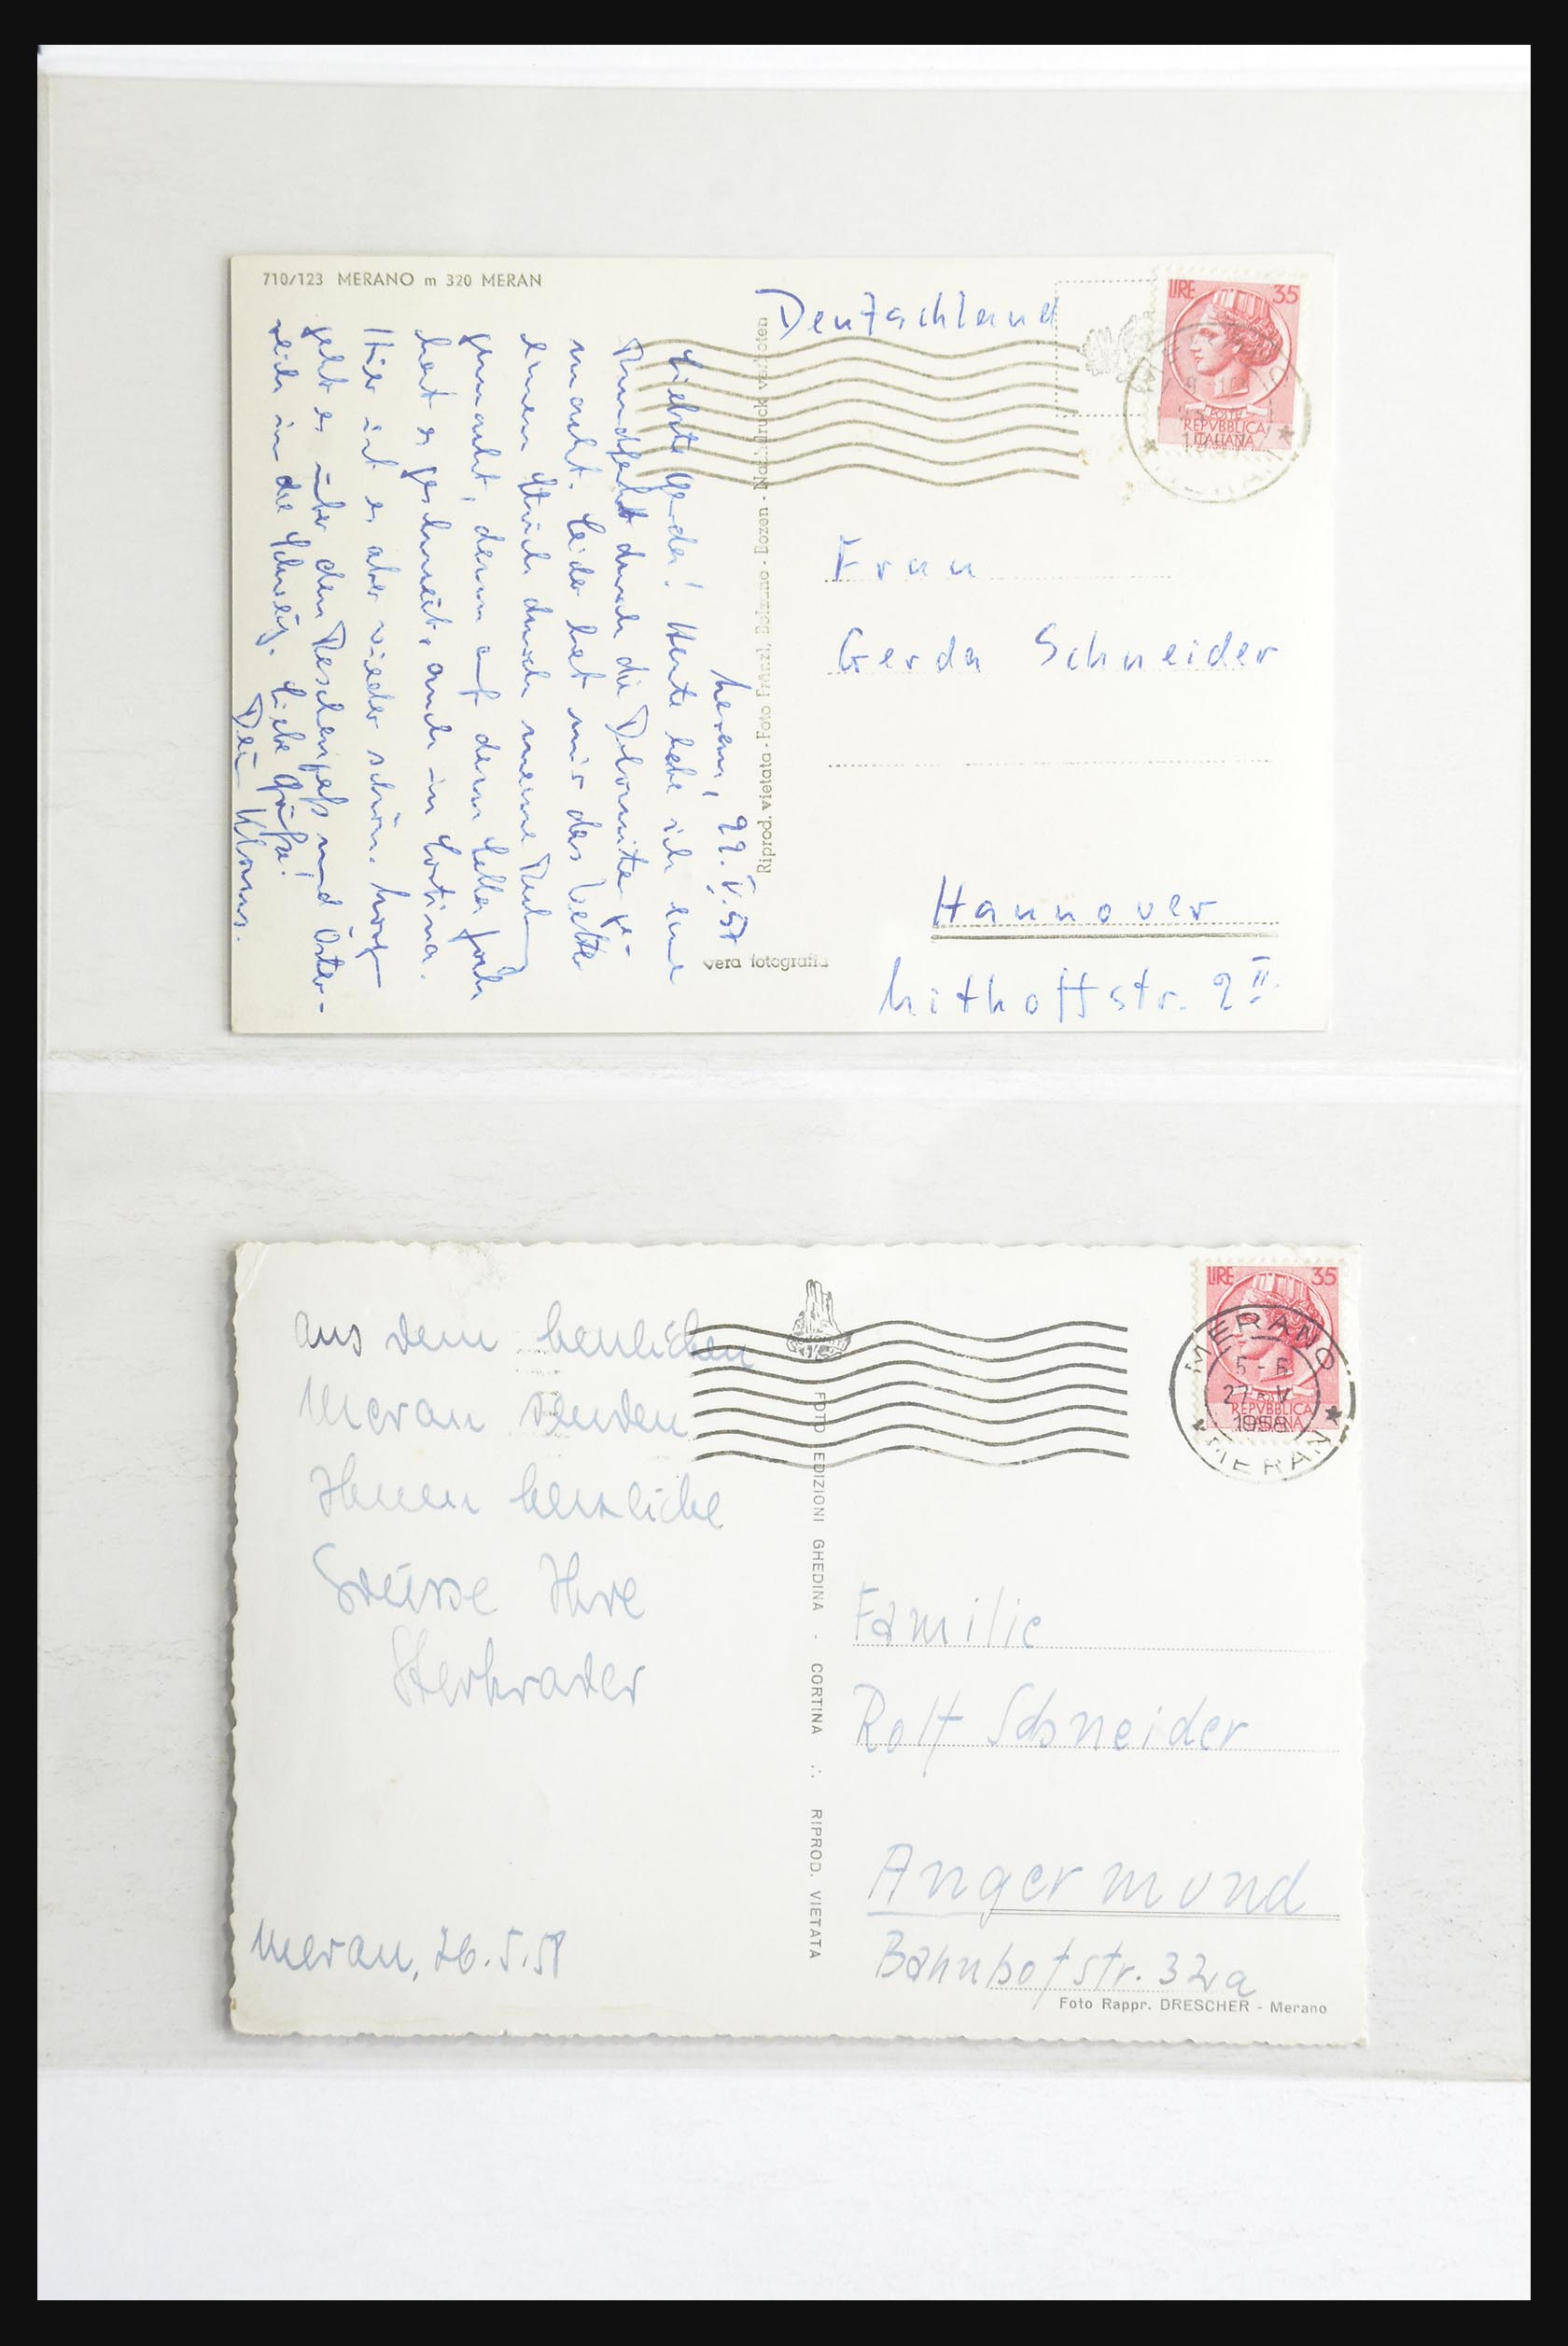 710/123 MERANO m 320 MERAN
Deutschland
LIRE 35
POSTE
REPVBBLICA
ITALIANA
Meran, 22.V.57
Liebste Gerda! Heute habe ich eine
Rundfahrt durch die Dolomiten ge-
macht. Leider hat mir das Wetter
einen Strich durch meine
gemacht, denn auf dem Sella Joch
hat es geschneit, auch in Cortina.
Hier ist es aber wieder schön. Morgen
geht es über den Reschenpaß und Öster-
reich in die Schweiz. Liebe Grüße!
Dein Klaus.
Riprod. vietata - Foto Fränzl, Bolzano - Bozen - Nachdruck verboten
vera fotografia
Frau
Gerda Schneider
Hannover
Mithoffstr. 2 II.
LIRE 35
REPVBBLICA
ITALIANA
MERANO
5-6
27 V
1958
MERAN
Aus dem herrlichen
Meran senden
Ihnen herzliche
Grüsse Ihre
Sterkrader
Meran, 26.5.58
FOTO EDIZIONI GHEDINA - CORTINA ∴ RIPROD. VIETATA
Familie
Rolf Schneider
Angermund
Bahnhofstr. 32a
Foto Rappr. DRESCHER - Merano